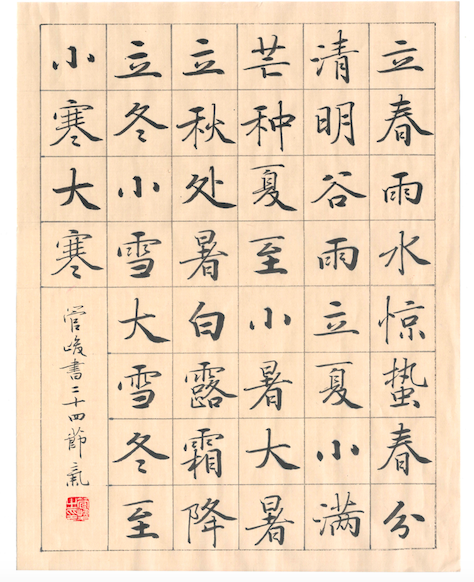 立春雨水惊蛰春分
清明谷雨立夏小满
芒种夏至小暑大暑
立秋处暑白露霜降
立冬小雪大雪冬至
小寒大寒
管峻書二十四節氣